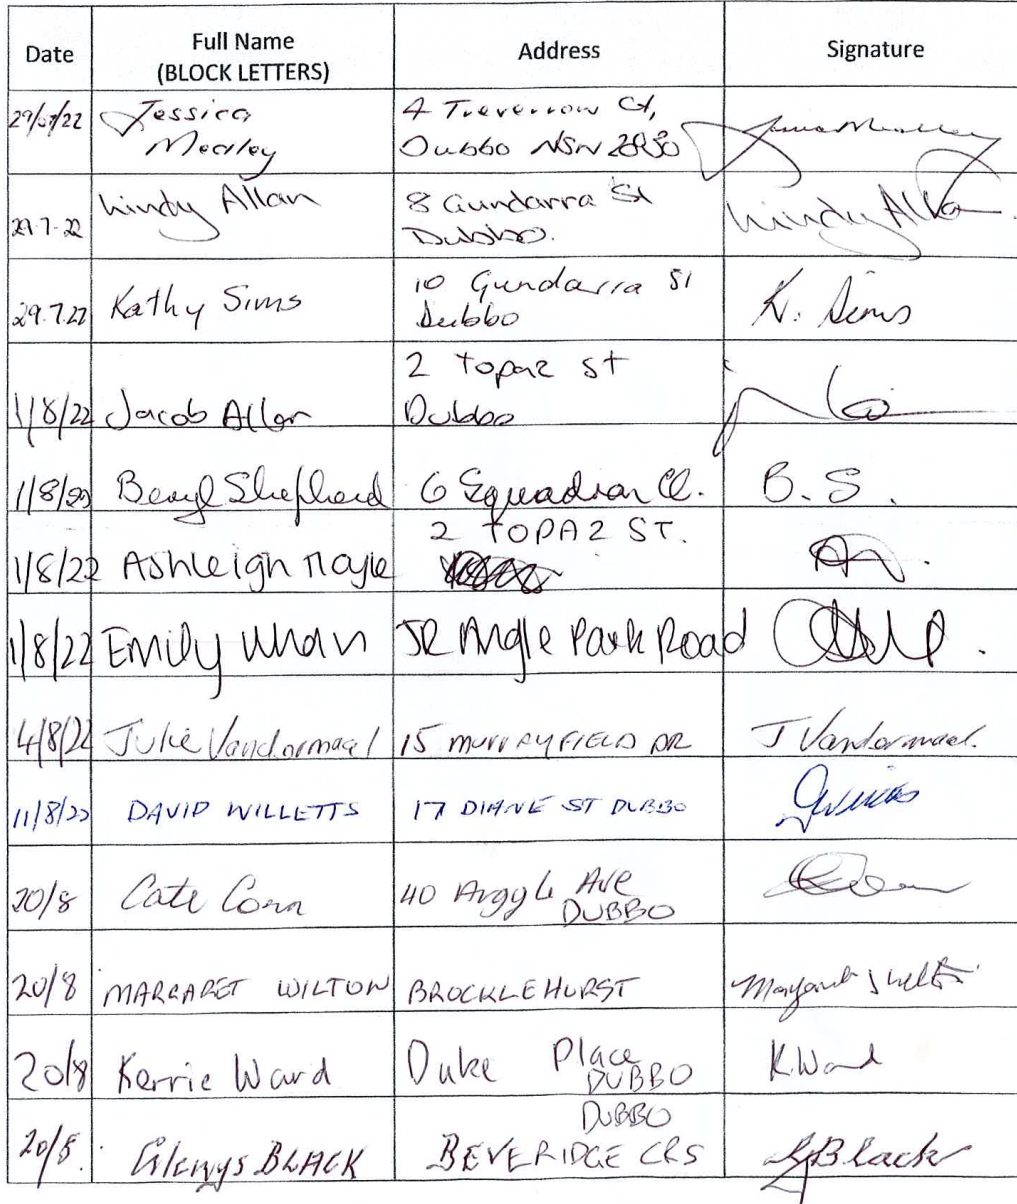 Date Full Name (BLOCK LETTERS) Address Signature
29/07/22 Jessica Mealey 4 Treverrow Ct, Dubbo NSW 2830
29.7.22 Lindy Allan 8 Gundarra St Dubbo. Lindy Allan
29.7.22 Kathy Sims 10 Gundarra St Dubbo K. Sims
1/8/22 Jacob Allan 2 Topaz St Dubbo
1/8/22 Beryl Shepherd 6 Squadron Cl. B.S.
1/8/22 Ashleigh 2 TOPAZ ST.
1/8/22 Emily Whan Angle Park Road
4/8/22 Julie Vandormael 15 MURRAYFIELD DR J Vandormael.
11/8/22 DAVID WILLETTS 17 DIANE ST DUBBO
20/8 Cate Conn 40 Argyle Ave DUBBO
20/8 MARGARET WILTON BROCKLEHURST Margaret Wilton
20/8 Kerrie Ward Duke Place DUBBO K.Ward
20/8. Glenys BLACK DUBBO BEVERIDGE CRS G Black